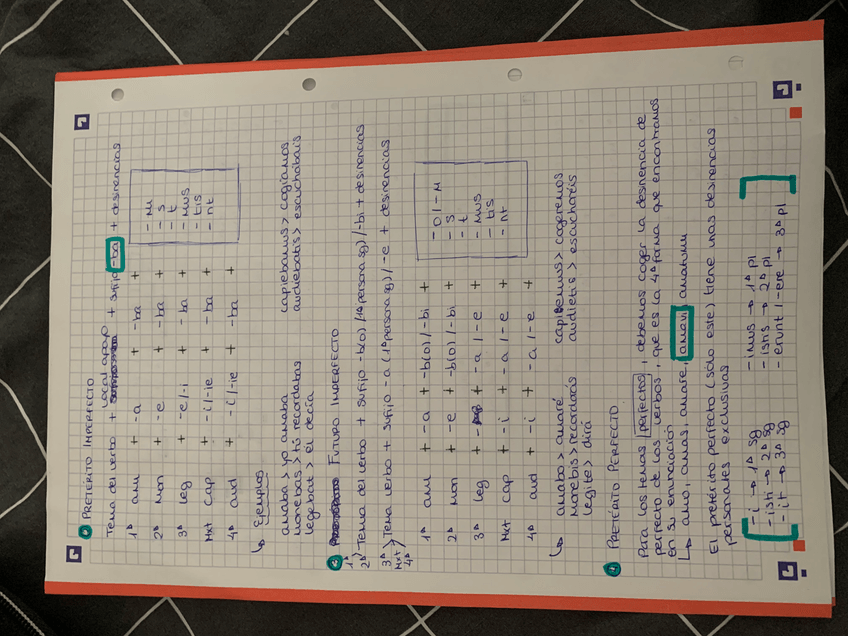 PRETÉRITO IMPERFECTO
vocal apoyo
Tema del verbo + + sufijo -ba + desinencias
1ª amu + -a + -ba +
2ª Mon + -e + -ba +
3ª leg + -e/-i + -ba +
Mxt cap + -i/-ie + -ba +
4ª aud + -i/-ie + -ba +
- M
- s
- t
- mus
- tis
- nt
↳ Ejemplos
amaba > yo amaba
monebas > tú recordabas
legebat > él decía
capiebamus > cogíamos
audiebatis > escuchabais
③ FUTURO IMPERFECTO
1ª
2ª > Tema del verbo + sufijo -b(o) (1ª persona sg) /-bi + desinencias
3ª
Mxt > Tema verbo + sufijo -a (1ª persona sg) / -e + desinencias
4ª
1ª amu + -a + -b(o) /-bi +
2ª Mon + -e + -b(o) /-bi +
3ª leg + - + -a / -e +
Mxt cap + -i + -a / -e +
4ª aud + -i + -a / -e +
- o / - M
- s
- t
- mus
- tis
- nt
↳ amabo > amaré
monebis > recordarás
dirá
cogeremos
audietis > escucharéis
④ PRETÉRITO PERFECTO
Para los temas perfectos, debemos coger la desinencia de
perfecto de los verbos, que es la 4ª forma que encontramos
en su enunciación
↳ amo, amas, amare, amavi, amatum
El pretérito perfecto (sólo este) tiene unas desinencias
personales exclusivas
- i → 1ª sg
- isti → 2ª sg
- it → 3ª sg
- imus → 1ª pl
- istis → 2ª pl
- erunt / -ere → 3ª pl